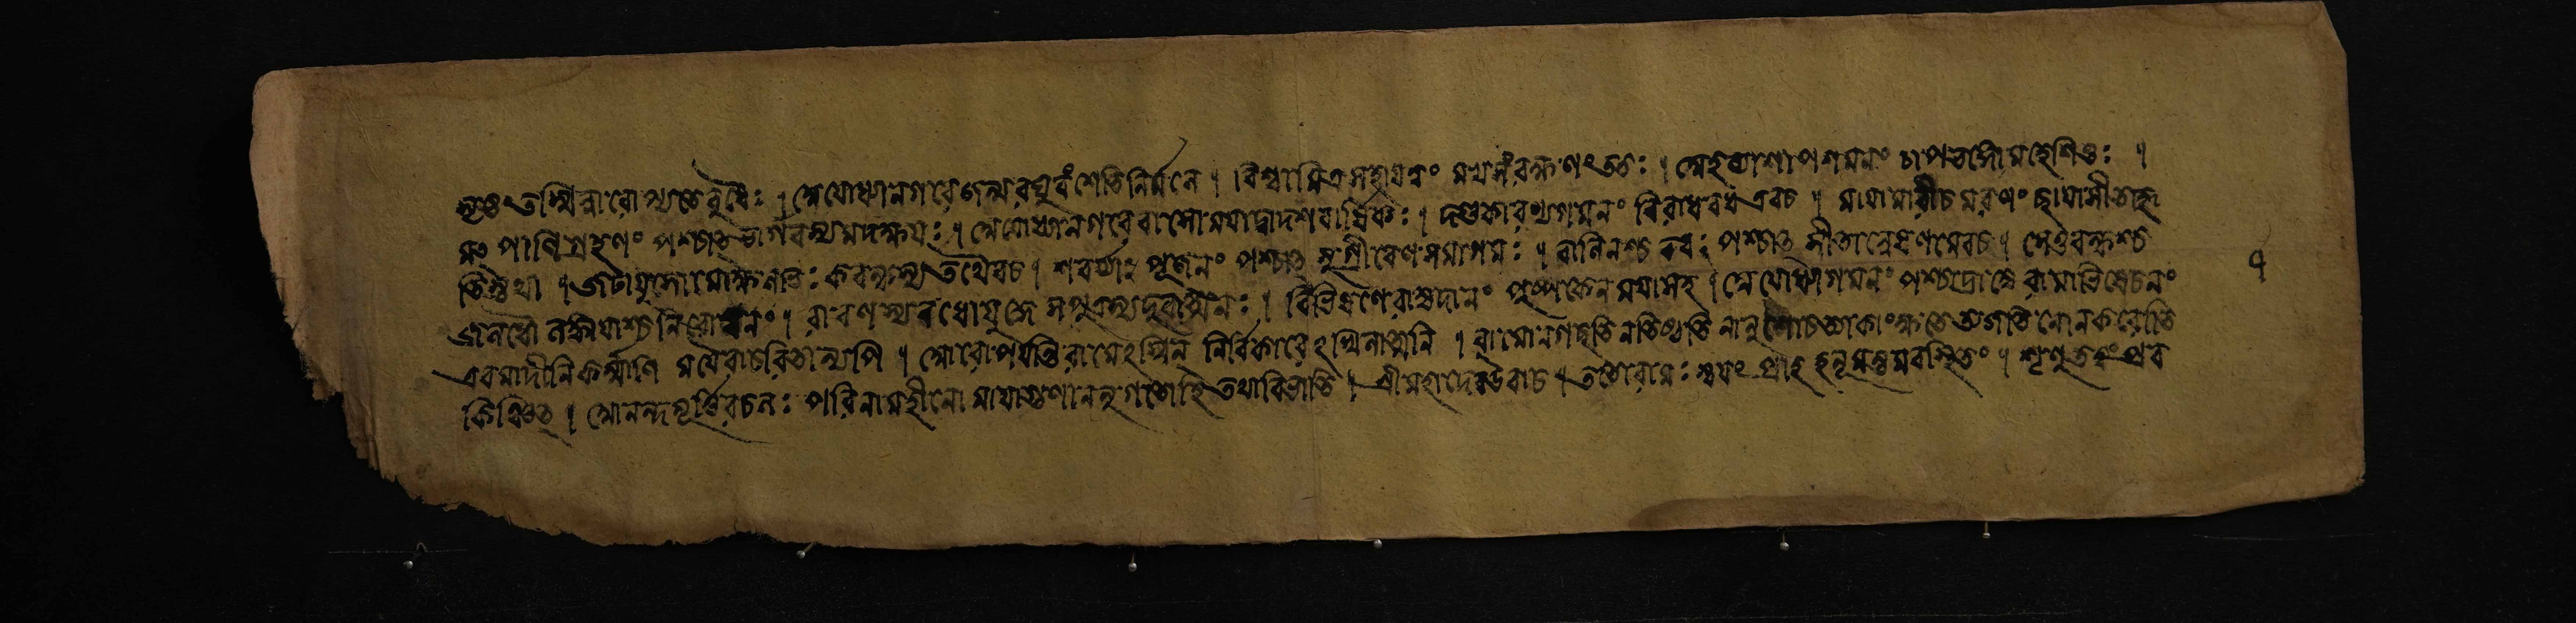 সৃষ্টং তস্মিন্নারোপ্যতে বুধৈঃ । অযোধ্যানগরে জন্ম রঘুবংশেতিনির্মলে । বিশ্বামিত্রসহাযত্বং মখসংরক্ষণংততঃ । অহল্যাশাপশমনং চাপভঙ্গোমহেশিতুঃ ।
মৎ পাণিগ্রহণং পশ্চাত্ ভার্গবস্যমদক্ষযঃ । অযোধ্যানগরে বাসোমযাদ্বাদশবার্ষিকঃ । দণ্ডকারণ্যগমনং বিরাধবধএবচ । মাযামারীচমরণং ছাযাসীতাহৃ
তিস্তথা । জটাযুষোমোক্ষলাভঃ কবন্ধস্য তথৈবচ । শবর্য্যাঃ পূজনং পশ্চাৎ সুগ্রীবেণ সমাগমঃ । বালিনশ্চ বধঃ পশ্চাৎ সীতান্বেষণমেবচ । সেতুবন্ধশ্চ
জলধৌ লঙ্কাযাশ্চ নিরোধনং । রাবণস্য বধোযুদ্ধে সপুত্রস্যদুরাত্মনঃ । বিভিষণে রাজ্যদানং পুষ্পকেন মযাসহ । অযোধ্যাগমনং পশ্চাদ্রাজ্যে রামাভিষেচনং
এবমাদীনি কর্ম্মাণি মযৈবাচরিতান্যপি । আরোপযন্তি রামেঽস্মিন্ নির্বিকারেঽখিলাত্মনি । রামোনগচ্ছতি নতিষ্ঠতি নানুশোচত্যাকাংক্ষতে ত্যজতি নোনকরোতি
কিঞ্চিৎ । আনন্দমূর্ত্তিরচলঃ পরিণামহীনো মাযাগুণাননুগতোহি তথাবিভাতি । শ্রীমহাদেবউবাচ । ততোরামঃ স্বযং প্রাহ হনূমন্তমবস্থিতং । শৃণুতত্বং প্রব